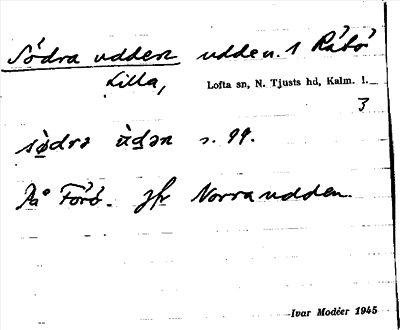 Södra udden udden. 1 Råbö
Lilla, Lofta sn, N. Tjusts hd, Kalm. l.
3
sö̀drə ùdən s. 99.
På Förö. Jfr Norra udden.
Ivar Modéer 1945